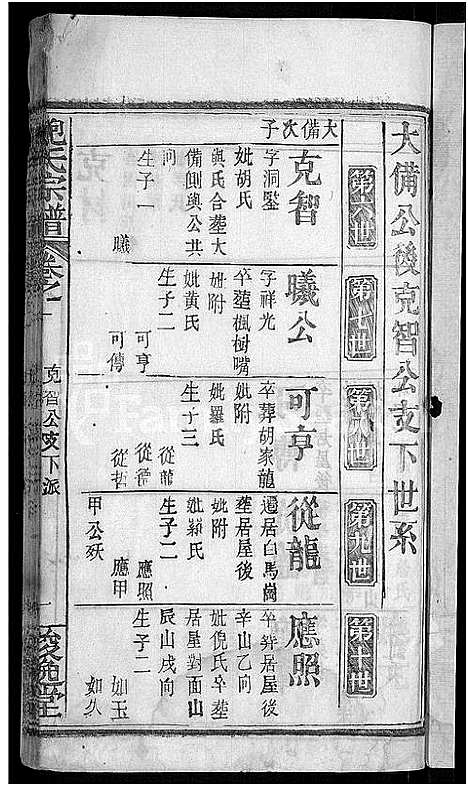 大備公後克智公支下世系
第六世
第七世
第八世
第九世
第十世
大備次子
克智
字洞鑒
妣胡氏
與氏合塟大
備側與公共
向
生子一
曦
曦公
字祥光
卒塟楓樹嘴
妣附
妣黃氏
生子二
可亨
可傳
可亨
卒葬胡家龍
妣附
妣羅氏
生子三
從龍
從德
從哲
從龍
遷居白馬崗
塟居屋後
妣附
妣潁氏
生子二
應照
應甲
甲公殀
應照
卒葬居屋後
辛山乙向
妣倪氏卒塟
居屋對面山
辰山戌向
生子二
如玉
如久
鮑氏宗譜
卷之一
克智公支下派
一